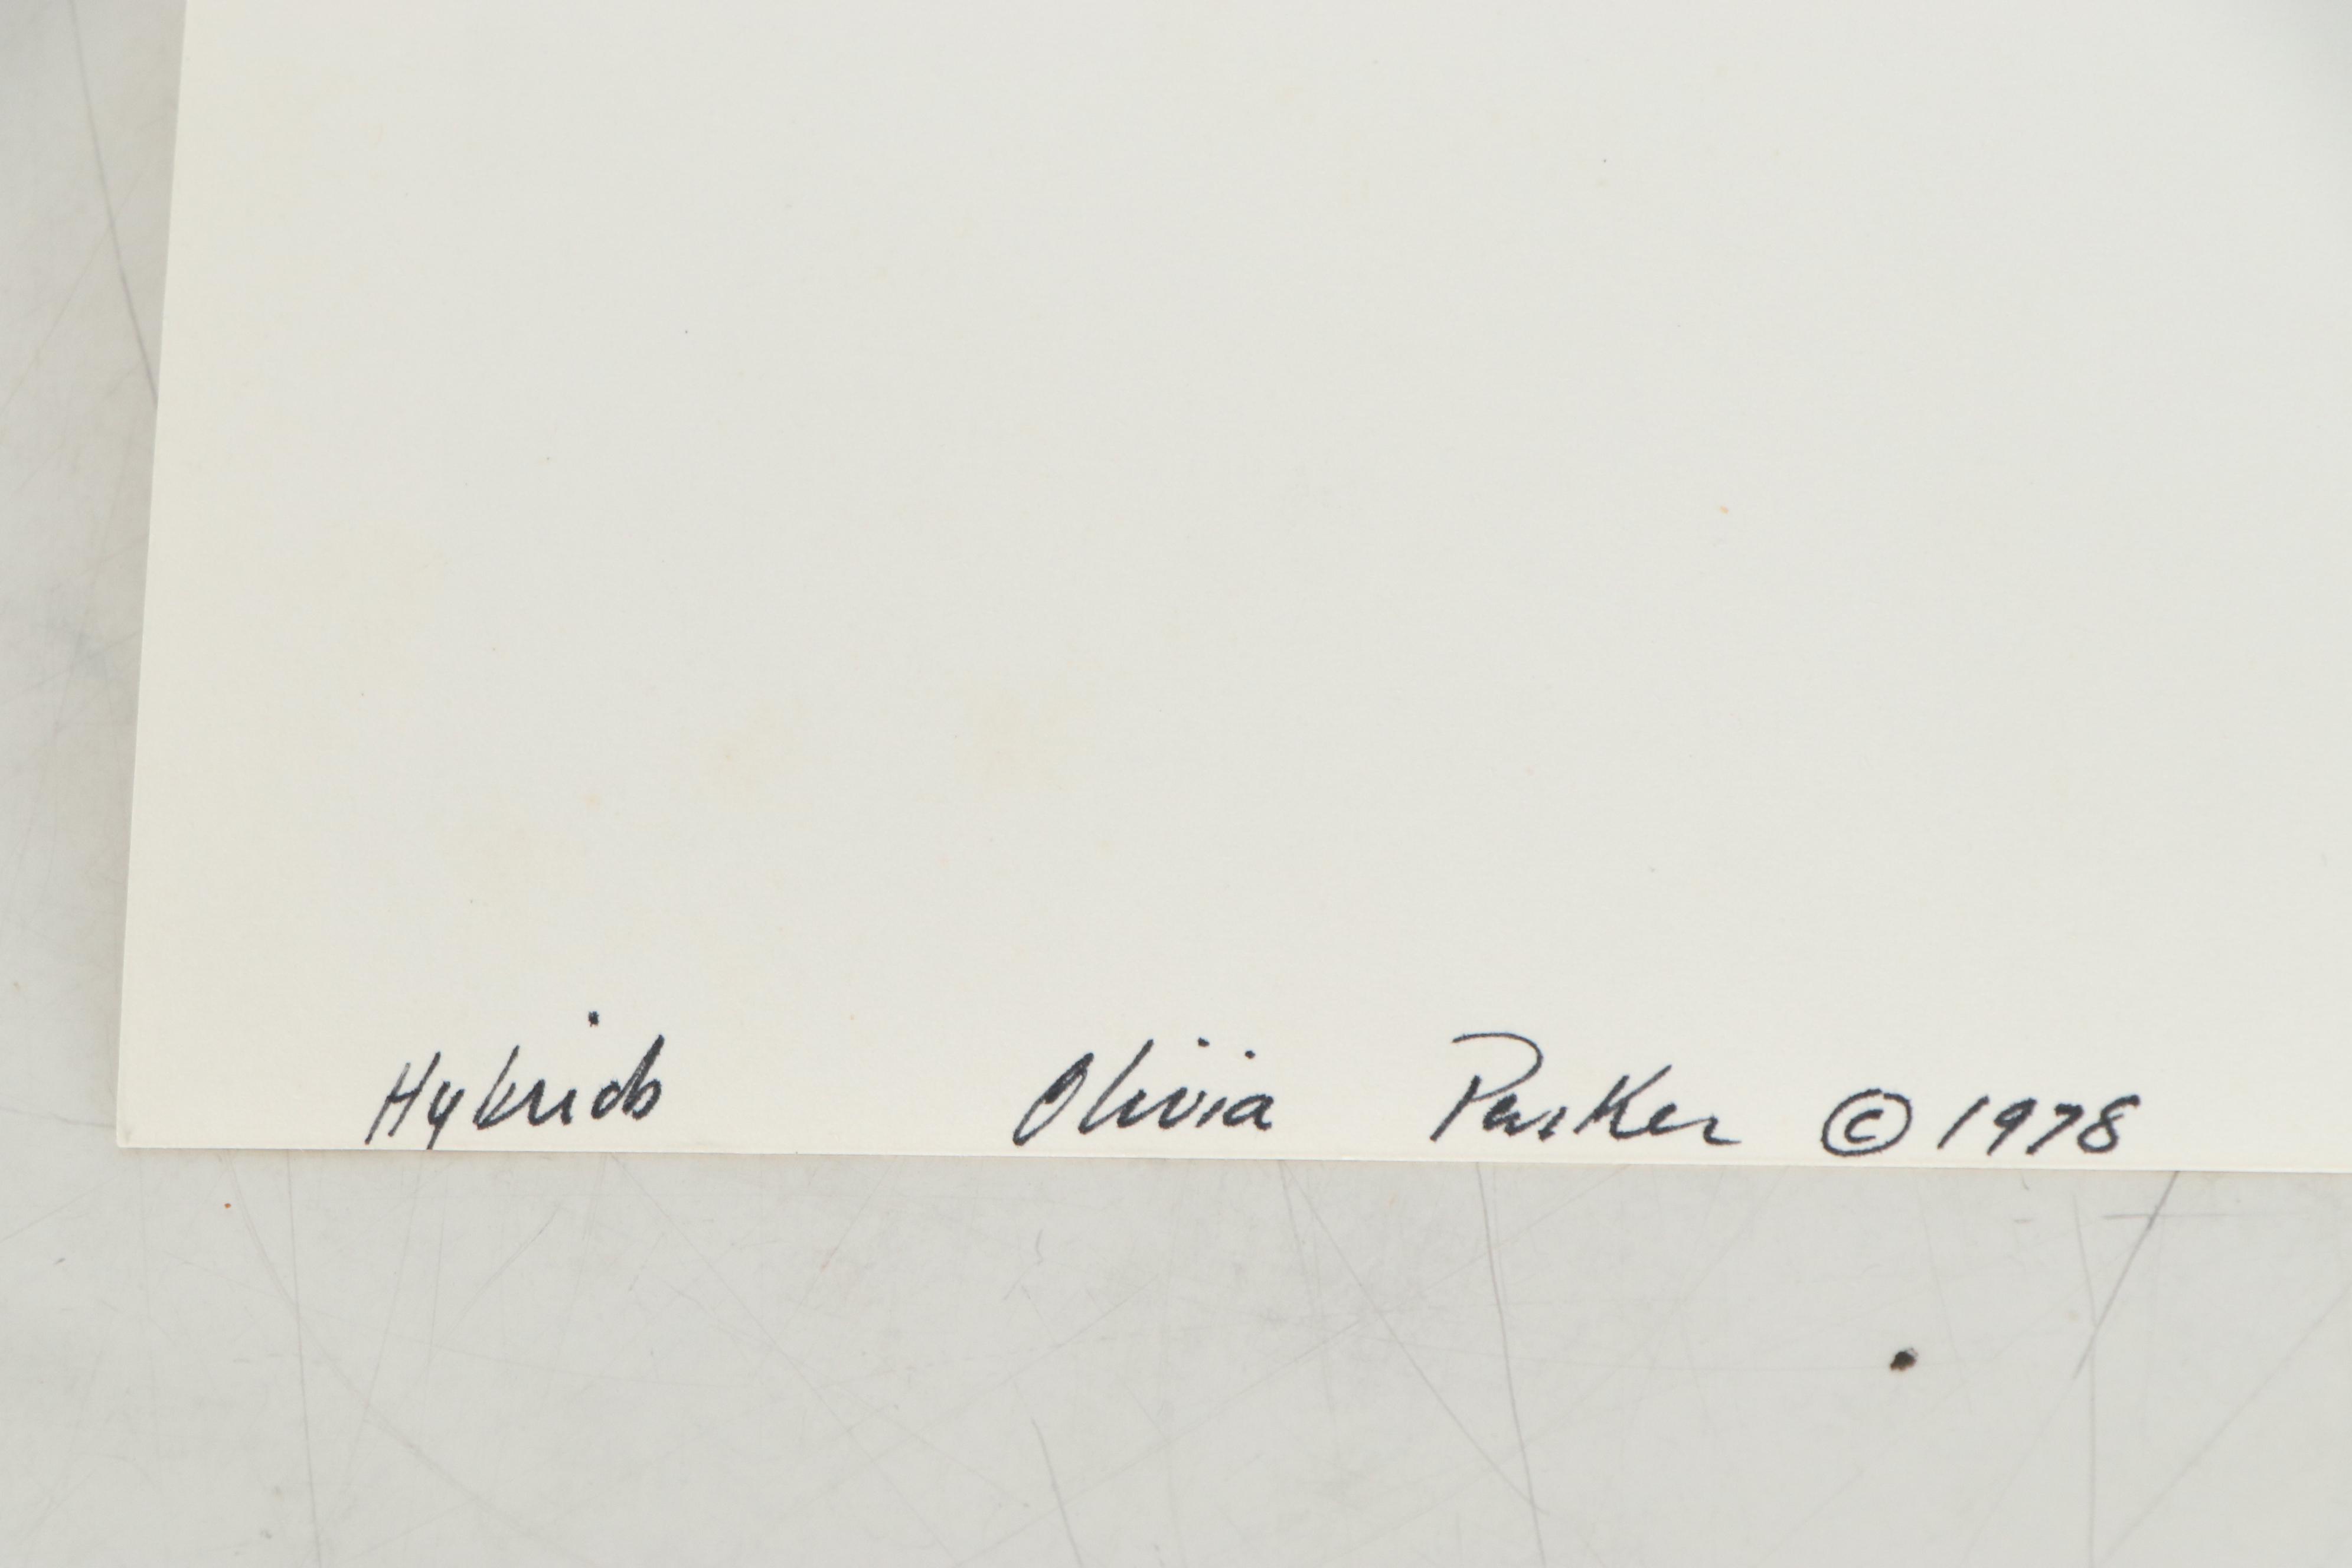 Hybrids Olivia Parker © 1978